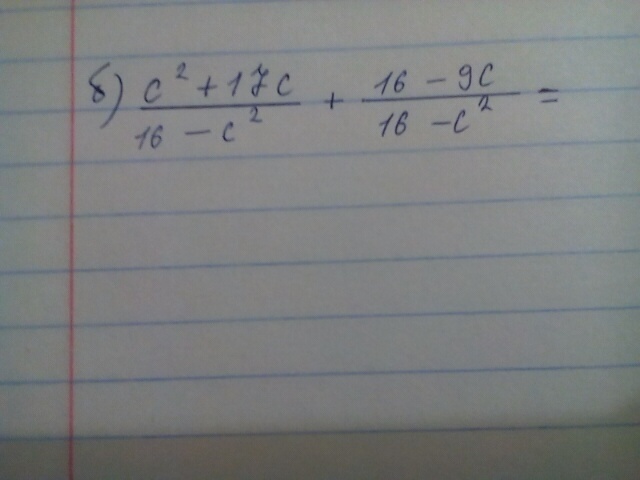 б) c² + 17c / 16 - c² + 16 - 9c / 16 - c² =